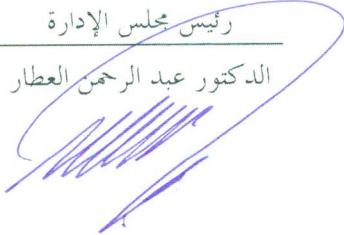 رئيس مجلس الإدارة
الدكتور عبد الرحمن العطار